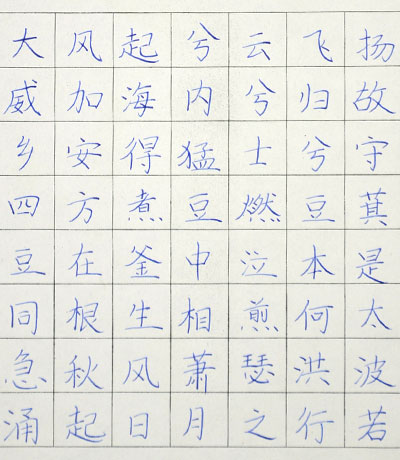 大风起兮云飞扬
威加海内兮归故
乡安得猛士兮守
四方煮豆燃豆萁
豆在釜中泣本是
同根生相煎何太
急秋风萧瑟洪波
涌起日月之行若